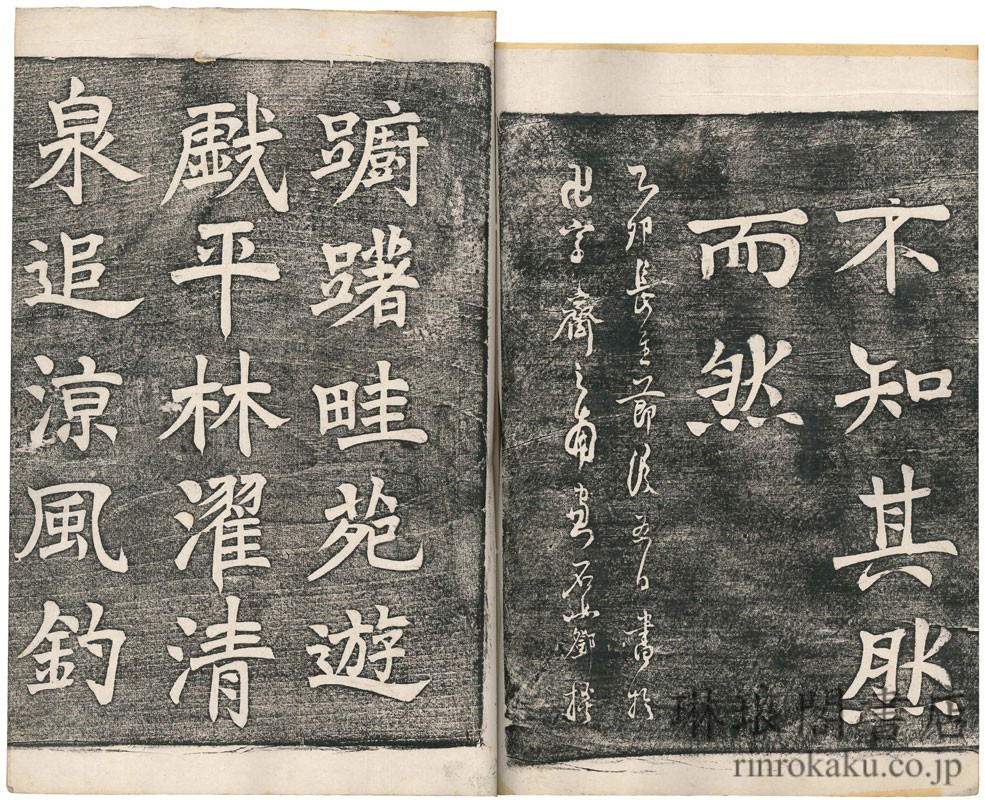 不知其然
而然
乙卯長至節後五日書於
卍字齋之南窗石如鄧琰
躕躇畦苑遊
戲平林濯清
泉追涼風釣
琳琅閣書店
rinrokaku.co.jp